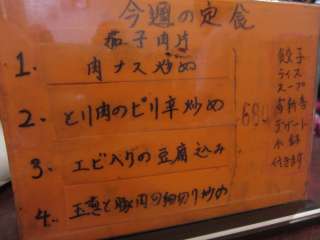 今週の定食
茄子肉片
1. 肉ナス炒め
2. とり肉のピリ辛炒め
3. エビ入りの豆腐込み
4. 玉真と豚肉の細切り炒め
餃子
ライス
スープ
お新香
デザート
小鉢
付きます